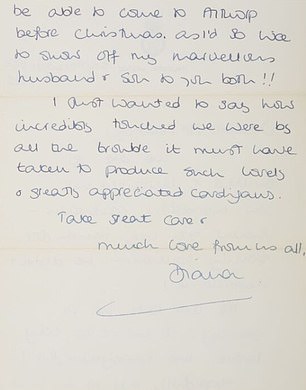 be able to come to Althorp
before Christmas. as I'd so love
to show off my marvellous
husband & son to you both!!
I just wanted to say how
incredibly touched we were by
all the trouble it must have
taken to produce such lovely
& greatly appreciated cardigans.
Take great care &
much love from us all,
Diana